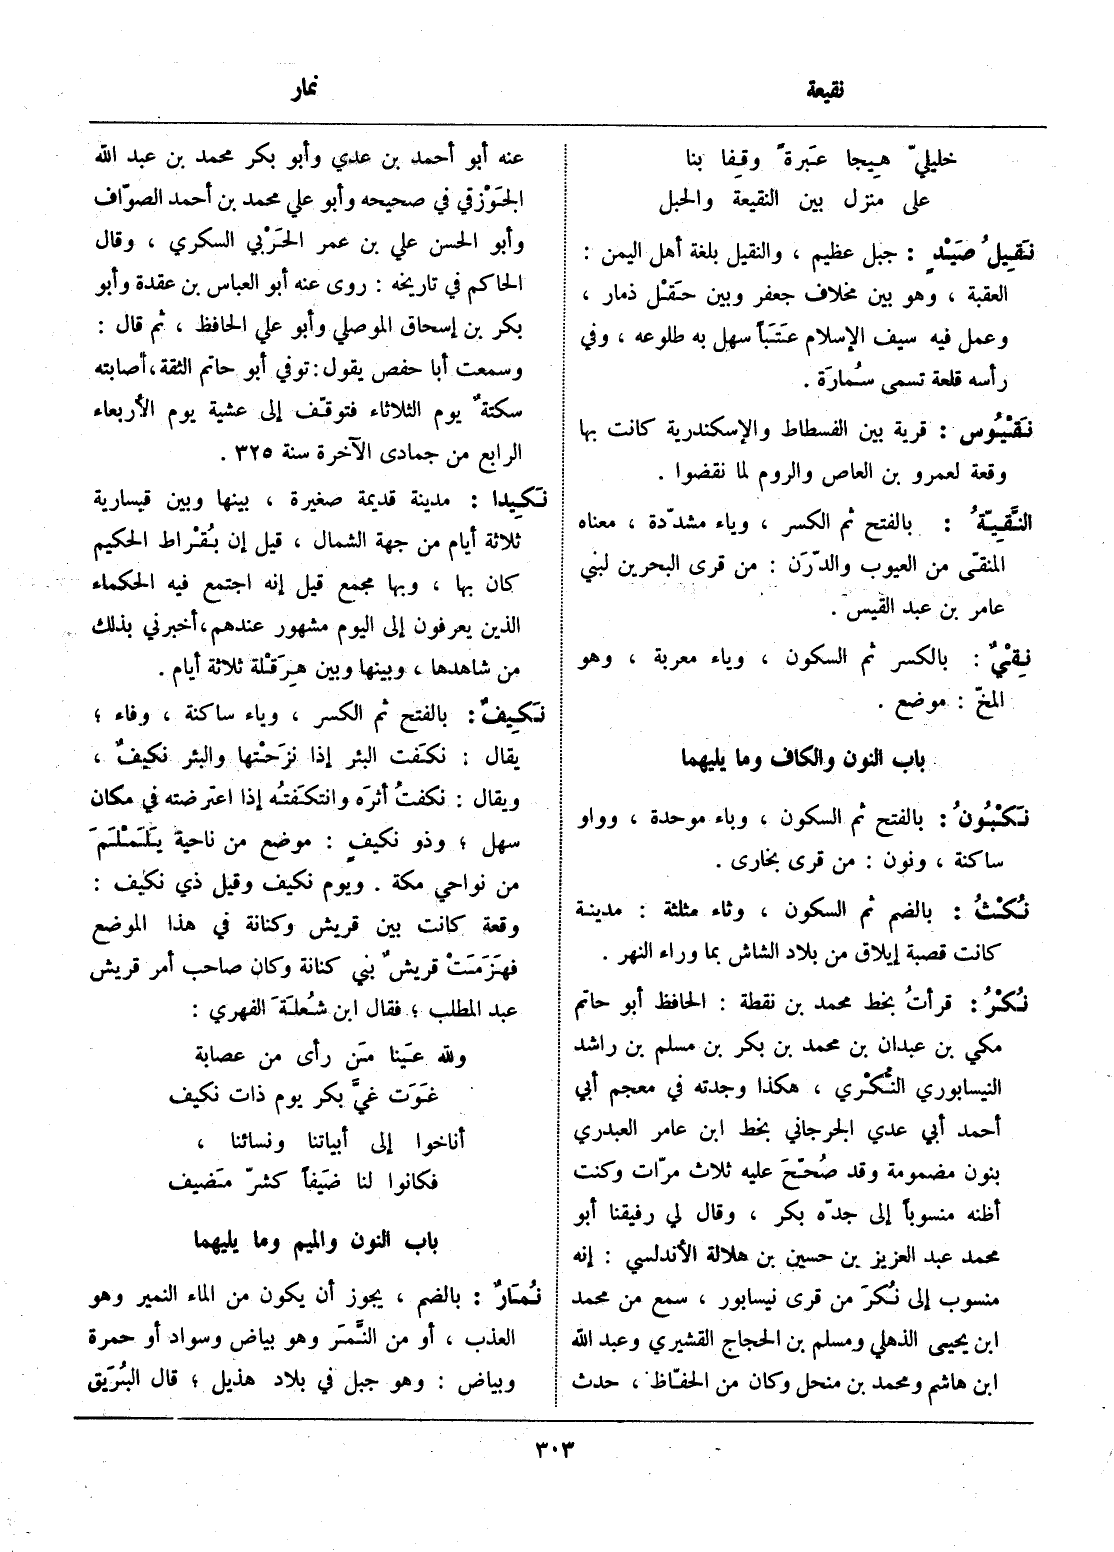 نقيعة
نمار
خليليّ هِيجا عَبرةً وقِفا بنا
على منزل بين النقيعة والحبل
نَقِيلُ صَيْدٍ : جبل عظيم ، والنقيل بلغة أهل اليمن :
العقبة ، وهو بين مخلاف جعفر وبين حَقْل ذمار ،
وعمل فيه سيف الإسلام عَتَباً سهل به طلوعه ، وفي
رأسه قلعة تسمى سُمارَة .
نَقْيُوس : قرية بين الفسطاط والإسكندرية كانت بها
وقعة لعمرو بن العاص والروم لما نقضوا .
النَّقِيّةُ : بالفتح ثم الكسر ، وياء مشدّدة ، معناه
المنقّى من العيوب والدّرَن : من قرى البحرين لبني
عامر بن عبد القيس .
نِقْيٌ : بالكسر ثم السكون ، وياء معربة ، وهو
المخّ : موضع .
باب النون والكاف وما يليهما
نَكْبُونُ : بالفتح ثم السكون ، وباء موحدة ، وواو
ساكنة ، ونون : من قرى بخارى .
نُكْثُ : بالضم ثم السكون ، وثاء مثلثة : مدينة
كانت قصبة إيلاق من بلاد الشاش بما وراء النهر .
نُكْرُ : قرأتُ بخط محمد بن نقطة : الحافظ أبو حاتم
مكي بن عبدان بن محمد بن بكر بن مسلم بن راشد
النيسابوري النُّكْري ، هكذا وجدته في معجم أبي
أحمد أبي عدي الجرجاني بخط ابن عامر العبدري
بنون مضمومة وقد صُحّحَ عليه ثلاث مرّات وكنت
أظنه منسوباً إلى جدّه بكر ، وقال لي رفيقنا أبو
محمد عبد العزيز بن حسين بن هلالة الأندلسي : إنه
منسوب إلى نُكْرَ من قرى نيسابور ، سمع من محمد
ابن يحيى الذهلي ومسلم بن الحجاج القشيري وعبد الله
ابن هاشم ومحمد بن منحل وكان من الحفّاظ ، حدث
عنه أبو أحمد بن عدي وأبو بكر محمد بن عبد الله
الجَوْزقي في صحيحه وأبو علي محمد بن أحمد الصوّاف
وأبو الحسن علي بن عمر الحَرْبي السكري ، وقال
الحاكم في تاريخه : روى عنه أبو العباس بن عقدة وأبو
بكر بن إسحاق الموصلي وأبو علي الحافظ ، ثم قال :
وسمعت أبا حفص يقول : توفي أبو حاتم الثقة ، أصابته
سكتةٌ يوم الثلاثاء فتوقّف إلى عشية يوم الأربعاء
الرابع من جمادى الآخرة سنة ٣٢٥ .
نَكِيدا : مدينة قديمة صغيرة ، بينها وبين قيسارية
ثلاثة أيام من جهة الشمال ، قيل إن بُقْراط الحكيم
كان بها ، وبها مجمع قيل إنه اجتمع فيه الحكماء
الذين يعرفون إلى اليوم مشهور عندهم ، أخبرني بذلك
من شاهدها ، وبينها وبين هِرَقْلة ثلاثة أيام .
نَكِيفٌ : بالفتح ثم الكسر ، وياء ساكنة ، وفاء ؛
يقال : نكَفت البئر إذا نزَحْتها والبئر نكيفٌ ،
ويقال : نكفتُ أثرَه وانتكَفتُه إذا اعترضته في مكان
سهل ؛ وذو نكيفٍ : موضع من ناحية يَلَمْلَمَ
من نواحي مكة . ويوم نكيف وقيل ذي نكيف :
وقعة كانت بين قريش وكنانة في هذا الموضع
فهَزَمَتْ قريشٌ بني كنانة وكان صاحب أمر قريش
عبد المطلب ؛ فقال ابن شُعلَةَ الفهري :
ولله عَينا مَن رأى من عصابة
غَوَت غيَّ بكر يوم ذات نكيف
أناخوا إلى أبياتنا ونسائنا ،
فكانوا لنا ضَيفاً كشرّ مَضيف
باب النون والميم وما يليهما
نُمَارٌ : بالضم ، يجوز أن يكون من الماء النمير وهو
العذب ، أو من النَّمَر وهو بياض وسواد أو حمرة
وبياض : وهو جبل في بلاد هذيل ؛ قال البُرَيق
٣٠٣